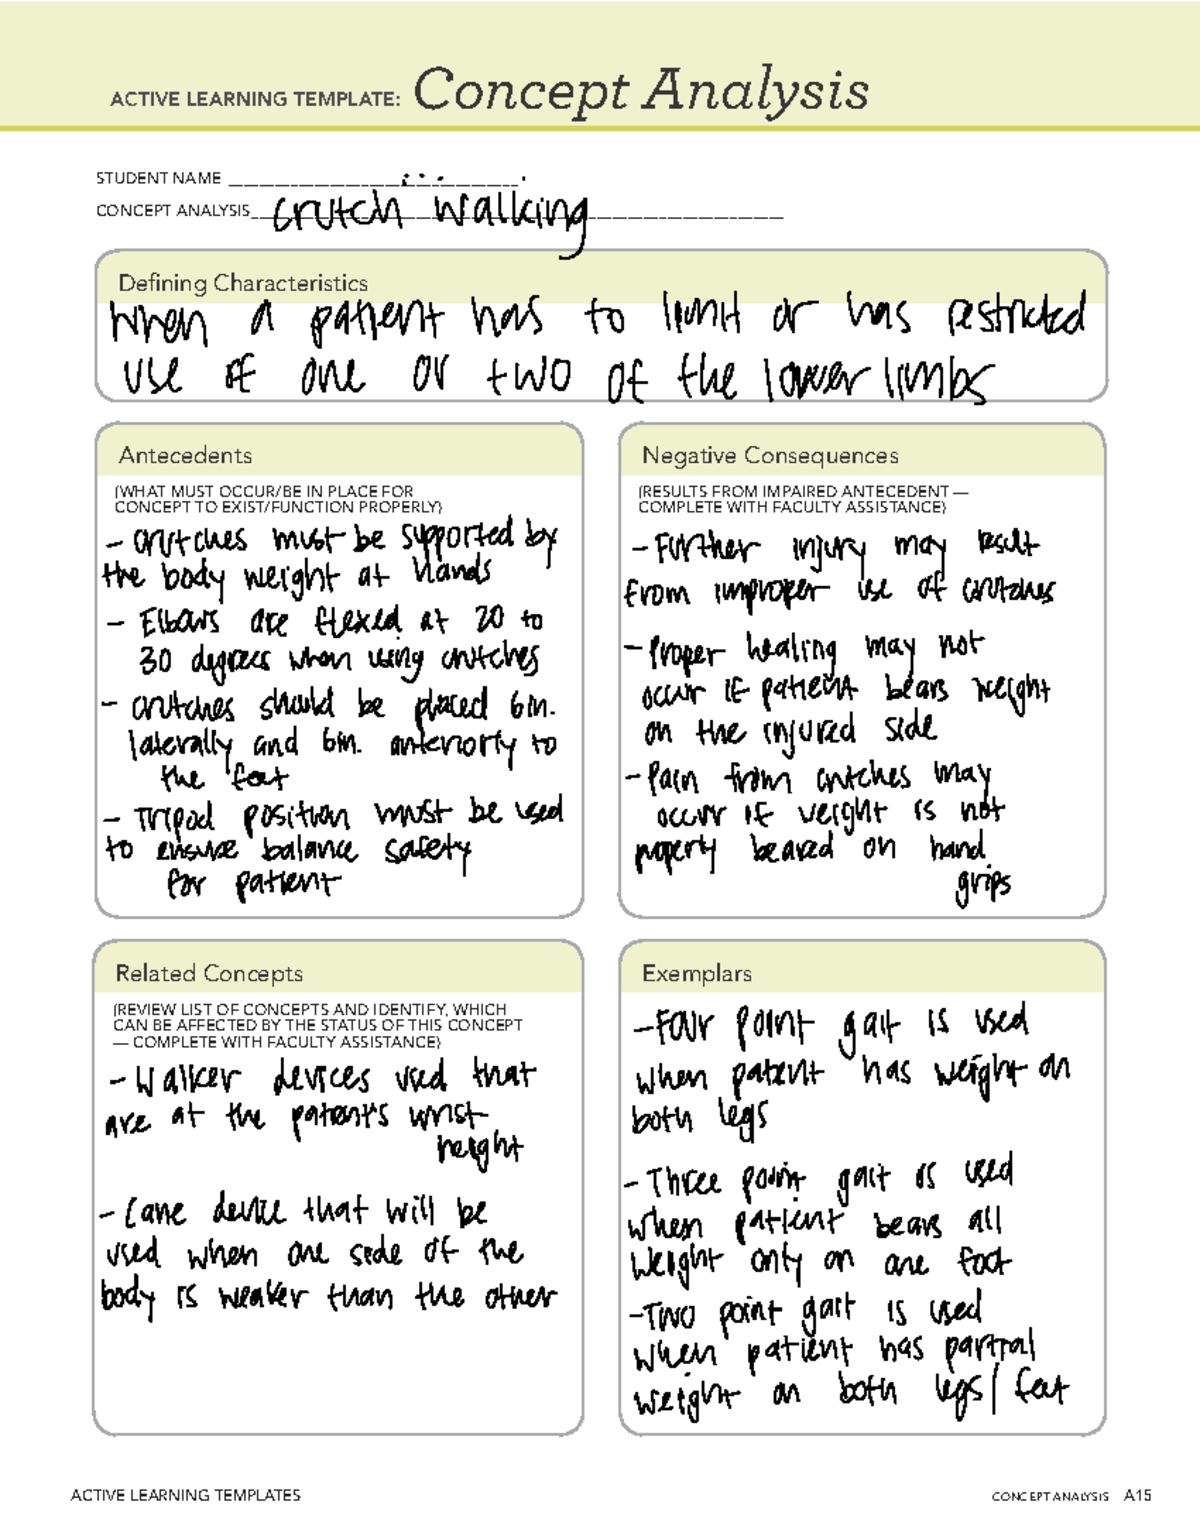 ACTIVE LEARNING TEMPLATE: Concept Analysis
STUDENT NAME
CONCEPT ANALYSIS crutch walking
Defining Characteristics
When a patient has to limit or has restricted
use of one or two of the lower limbs
Antecedents
(WHAT MUST OCCUR/BE IN PLACE FOR
CONCEPT TO EXIST/FUNCTION PROPERLY)
- crutches must be supported by
the body weight at hands
- Elbows are flexed at 20 to
30 degrees when using crutches
- crutches should be placed 6in.
laterally and 6in. anteriorly to
the feet
- Tripod position must be used
to ensure balance safety
for patient
Negative Consequences
(RESULTS FROM IMPAIRED ANTECEDENT —
COMPLETE WITH FACULTY ASSISTANCE)
- Further injury may result
from improper use of crutches
- Proper healing may not
occur if patient bears weight
on the injured side
- Pain from crutches may
occur if weight is not
properly beared on hand
grips
Related Concepts
(REVIEW LIST OF CONCEPTS AND IDENTIFY, WHICH
CAN BE AFFECTED BY THE STATUS OF THIS CONCEPT
— COMPLETE WITH FACULTY ASSISTANCE)
- Walker devices used that
are at the patient's wrist
height
- Cane device that will be
used when one side of the
body is weaker than the other
Exemplars
- Four point gait is used
when patient has weight on
both legs
- Three point gait is used
when patient bears all
weight only on one foot
- Two point gait is used
when patient has partial
weight on both legs/feet
ACTIVE LEARNING TEMPLATES
CONCEPT ANALYSIS A15